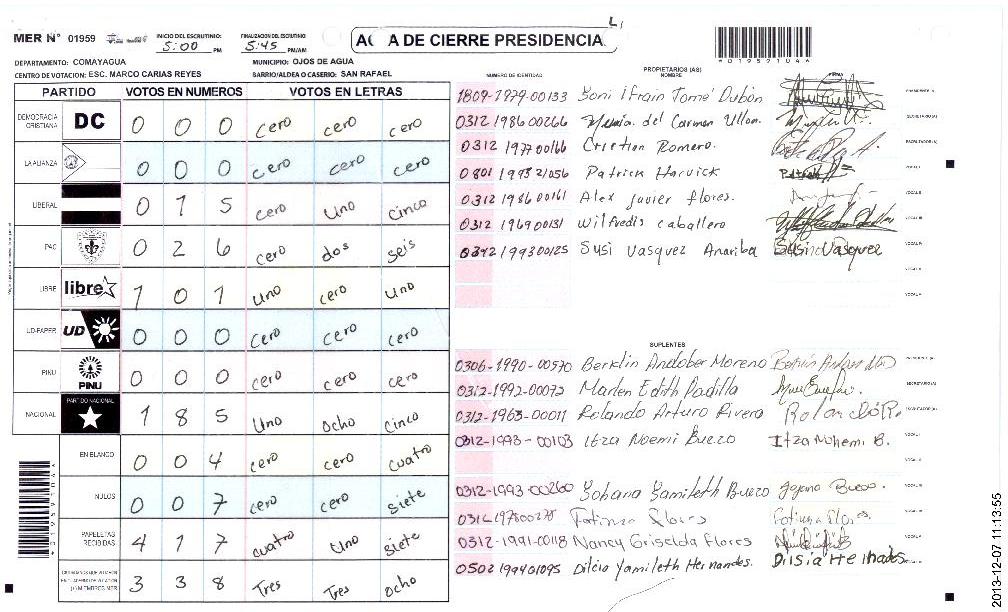 MER Nº 01959
INICIO DEL ESCRUTINIO: 5:00 PM
FINALIZACION DEL ESCRUTINIO 5:45 PM/AM
ACTA DE CIERRE PRESIDENCIAL
*01959104*
DEPARTAMENTO: COMAYAGUA MUNICIPIO: OJOS DE AGUA
CENTRO DE VOTACION: ESC. MARCO CARIAS REYES BARRIO/ALDEA O CASERIO: SAN RAFAEL
PARTIDO VOTOS EN NUMEROS VOTOS EN LETRAS
DEMOCRACIA CRISTIANA DC 0 0 0 cero cero cero
LA ALIANZA 0 0 0 cero cero cero
LIBERAL 0 1 5 cero Uno cinco
PAC 0 2 6 cero dos seis
LIBRE libre 1 0 1 Uno cero Uno
UD-FAPER UD 0 0 0 Cero Cero Cero
PINU PINU 0 0 0 cero cero cero
NACIONAL PARTIDO NACIONAL 1 8 5 Uno Ocho Cinco
EN BLANCO 0 0 4 cero cero cuatro
NULOS 0 0 7 cero cero siete
PAPELETAS RECIBIDAS 4 1 7 cuatro Uno siete
3 3 8 Tres Tres ocho
PROPIETARIOS (AS)
NUMERO DE IDENTIDAD NOMBRE FIRMA
1809-1979-00133 Yoni Ifrain Tomé Dubón
0312 1986 00266 del Carmen Ulloa.
0312 1977 00166 Cristian Romero.
0801 1993 21056 Patrick Harvick
0312 1986 00161 Alex javier flores.
0312 1969 00131 Wilfredis caballero
0312 1993 00125 Susi Vasquez Anariba Susi Vasquez
SUPLENTES
0306-1990-00570 Berklin Andober Moreno
0312-1992-00072 Marlen Edith Padilla
0312-1963-00011 Rolando Arturo Rivera
0312-1993-00103 Itza Noemi Buezo Itza Nohemi B.
0312-1993-00260 Yohana Yamileth Buezo
Fatima flores
0312-1991-00118 Nancy Griselda Flores
0502 199401095 Dilcia Yamileth Hernandes.
2013-12-07 11:13:55